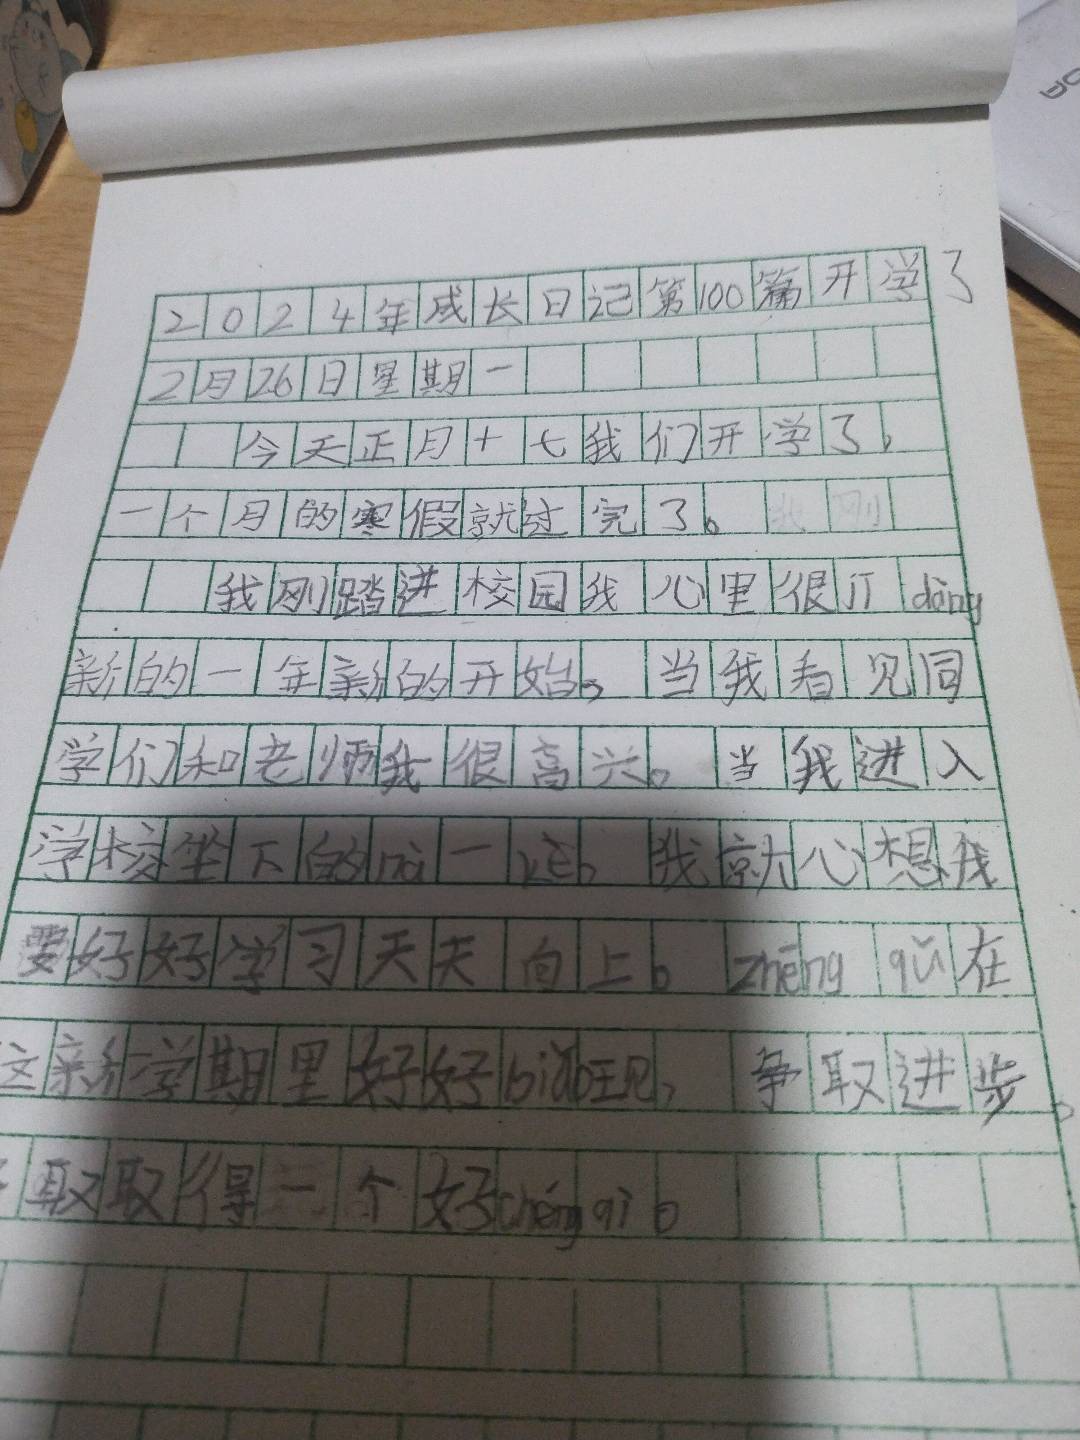 2024年成长日记第100篇开学了
2月26日星期一
今天正月十七我们开学了,
一个月的寒假就过完了。我刚
我刚踏进校园我心里很jī dòng
新的一年新的开始。当我看见同
学们和老师我很高兴。当我进入
学校坐下的nà一kè,我就心想我
要好好学习天天向上。zhēng qǔ在
这新学期里好好biǎo现,争取进步。
取取得一个好chéng jì。